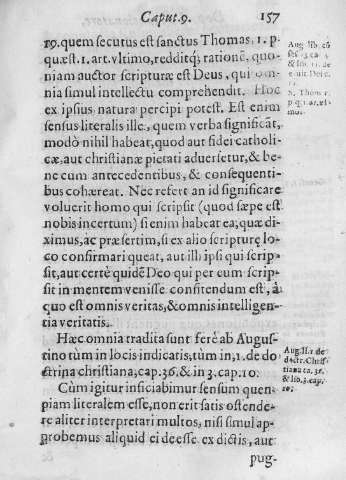 Caput.9. 157
19. quem secutus est sanctus Thomas. 1. p.
quæst. 1. art. vltimo, redditq́; rationē, quo-
niam auctor scripturæ est Deus, qui om-
nia simul intellectu comprehendit. Hoc
ex ipsius natura percipi potest. Est enim
sensus literalis ille, quem verba significāt,
modò nihil habeat, quod aut fidei catholi-
cæ, aut christianæ pietati aduersetur, & be-
ne cum antecedentibus, & consequenti-
bus cohæreat. Nec refert an id significare
voluerit homo qui scripsit (quod sæpe est
nobis incertum) si enim habet ea, quæ di-
ximus, ac præsertim, si ex alio scripturę lo-
co confirmari queat, aut illi ipsi qui scrip-
sit, aut certè quidē Deo qui per eum scrip-
sit in mentem venisse confitendum est, à
quo est omnis veritas, & omnis intelligen-
tia veritatis.
Hæc omnia tradita sunt ferè ab Augus-
tino tùm in locis indicatis, tùm in, 1. de do
ctrina christiana, cap. 36. & in 3. cap. 10.
Cùm igitur inficiabimur sensum quen-
piam literalem esse, non erit satis ostende-
re aliter interpretari multos, nisi simul ap-
probemus aliquid ei deesse ex dictis, aut
pug-
Aug. lib. cō
& lib. 11. de
S. Thom. 1.
Aug. li. 1. de
doctr. Chris-
tiana ca. 36.
& lib. 3. cap.
10.